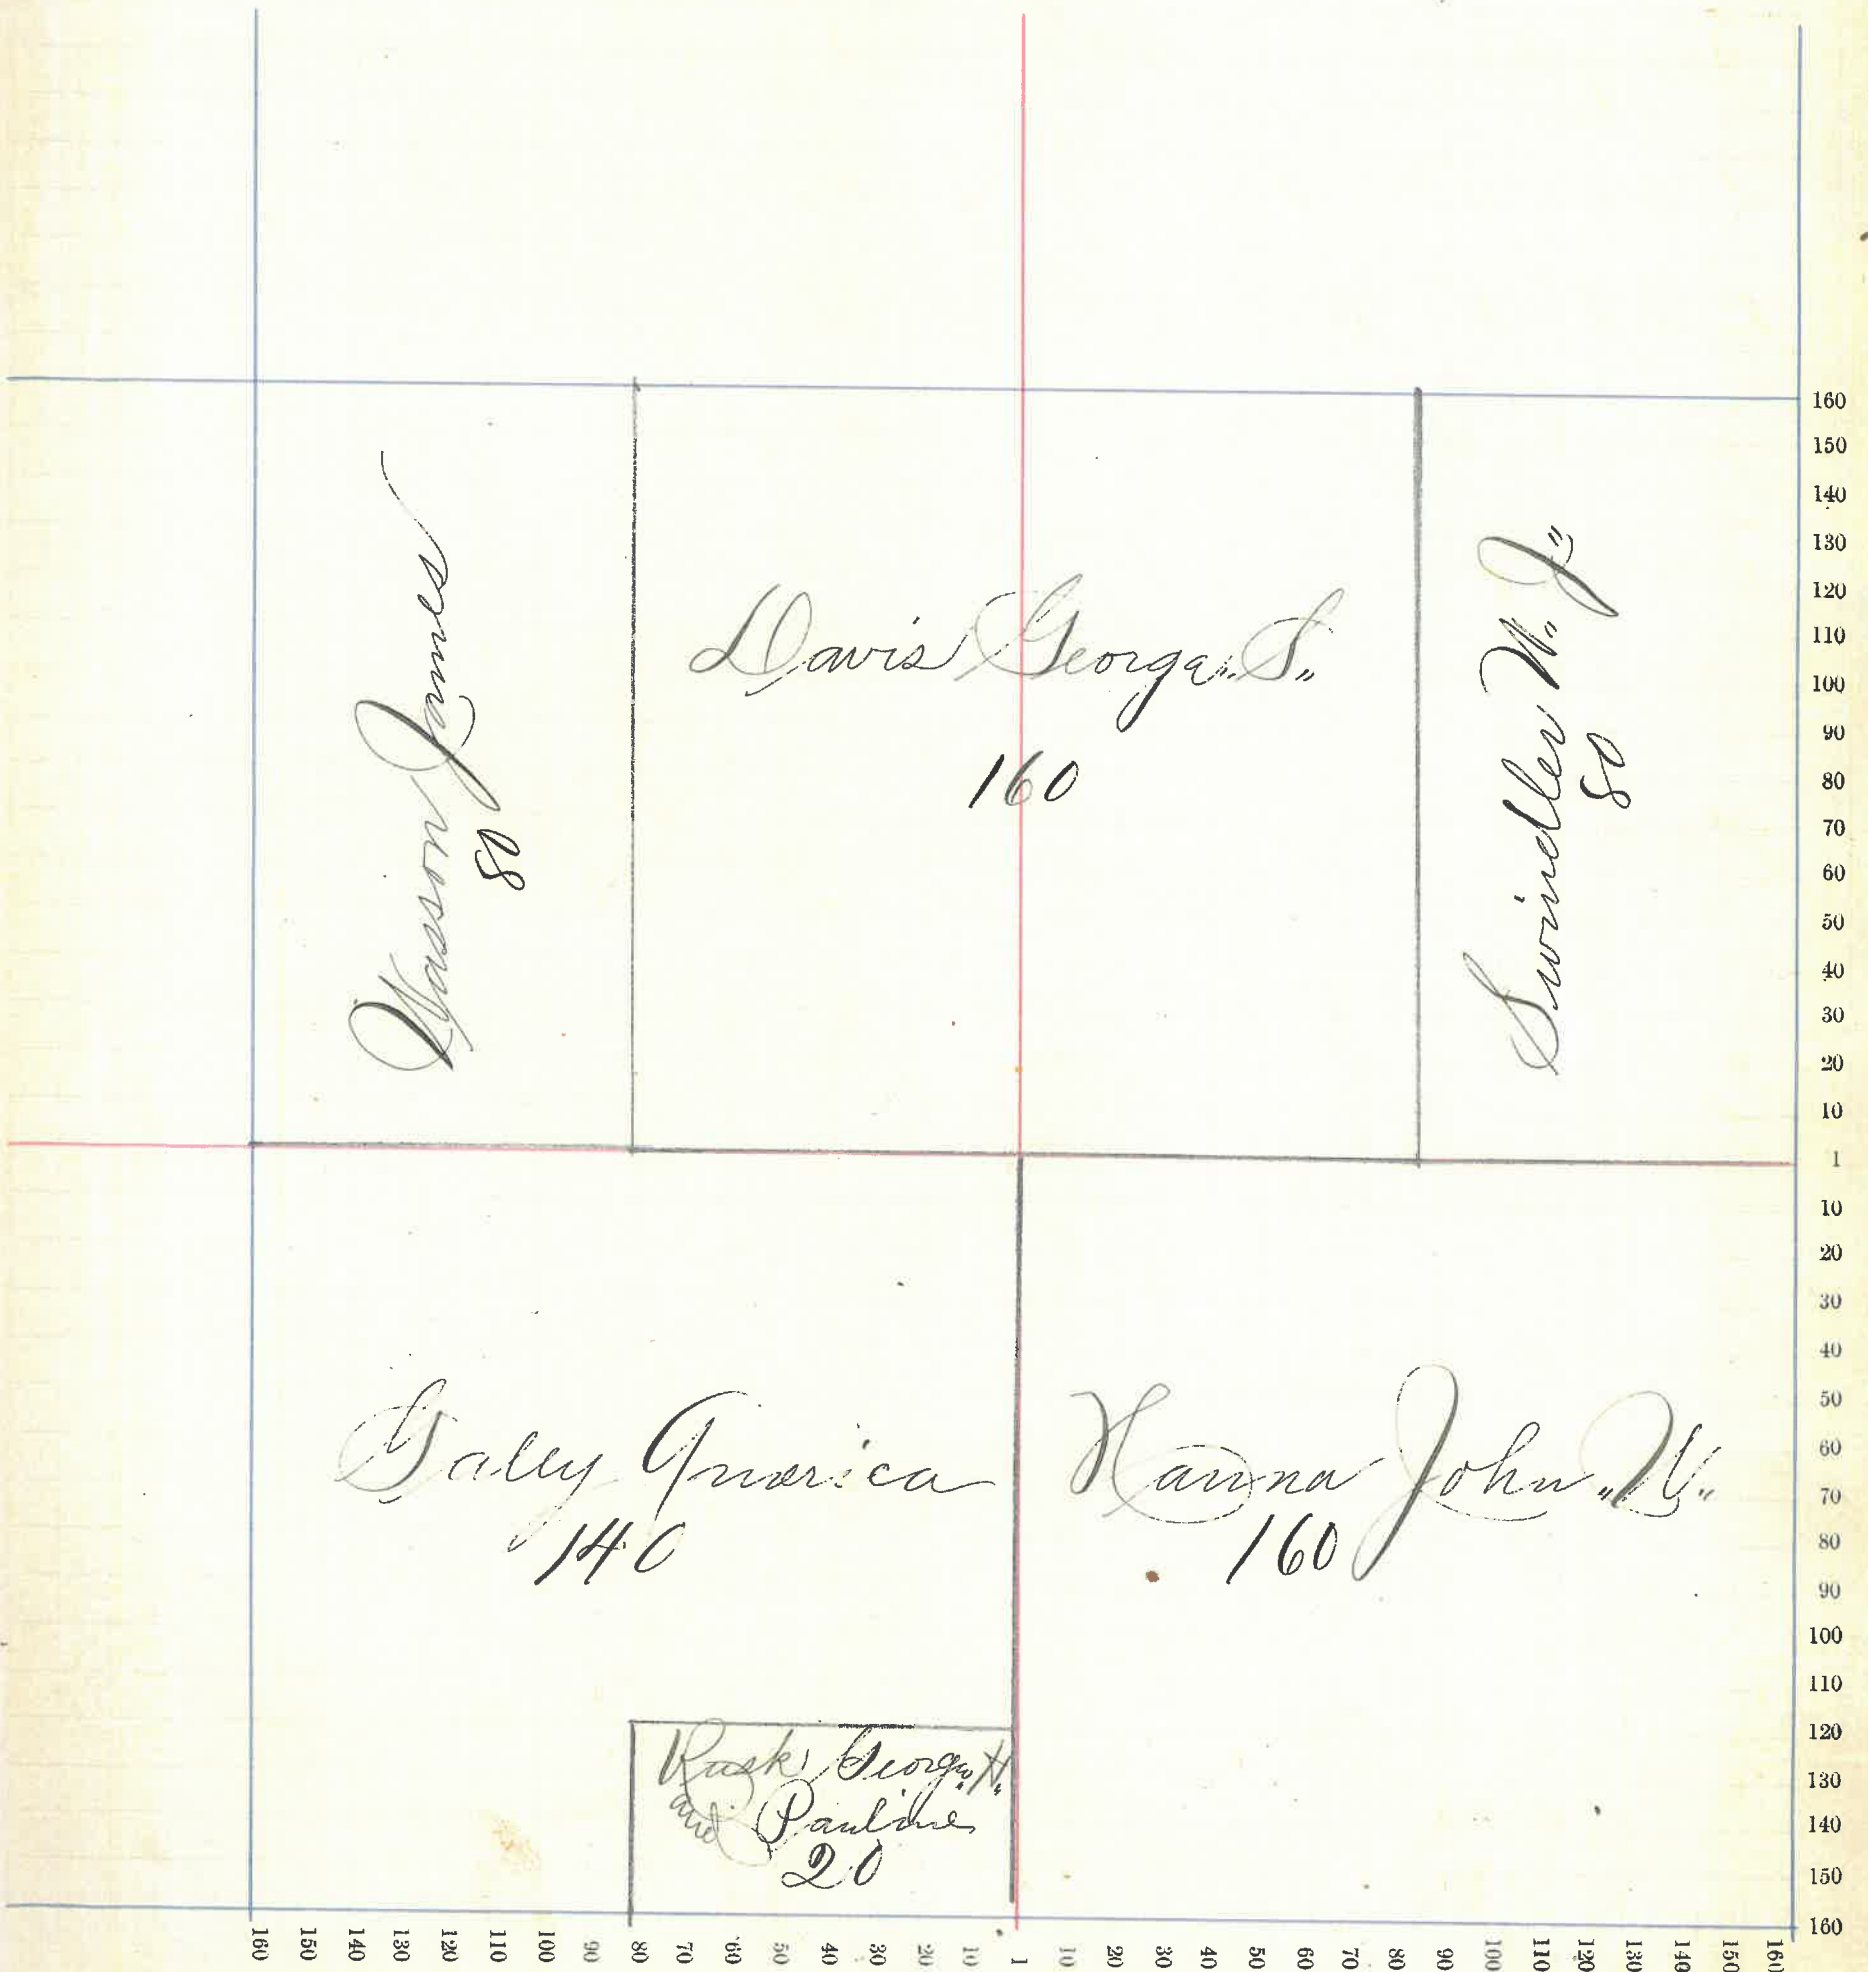 Wasson James
80
Davis George S.
160
Swindler W. J.
80
Gally America
140
Hanna John W.
160
Rusk George H.
and Pauline
20
160
150
140
130
120
110
100
90
80
70
60
50
40
30
20
10
1
10
20
30
40
50
60
70
80
90
100
110
120
130
140
150
160
160 150 140 130 120 110 100 90 80 70 60 50 40 30 20 10 1 10 20 30 40 50 60 70 80 90 100 110 120 130 140 150 160